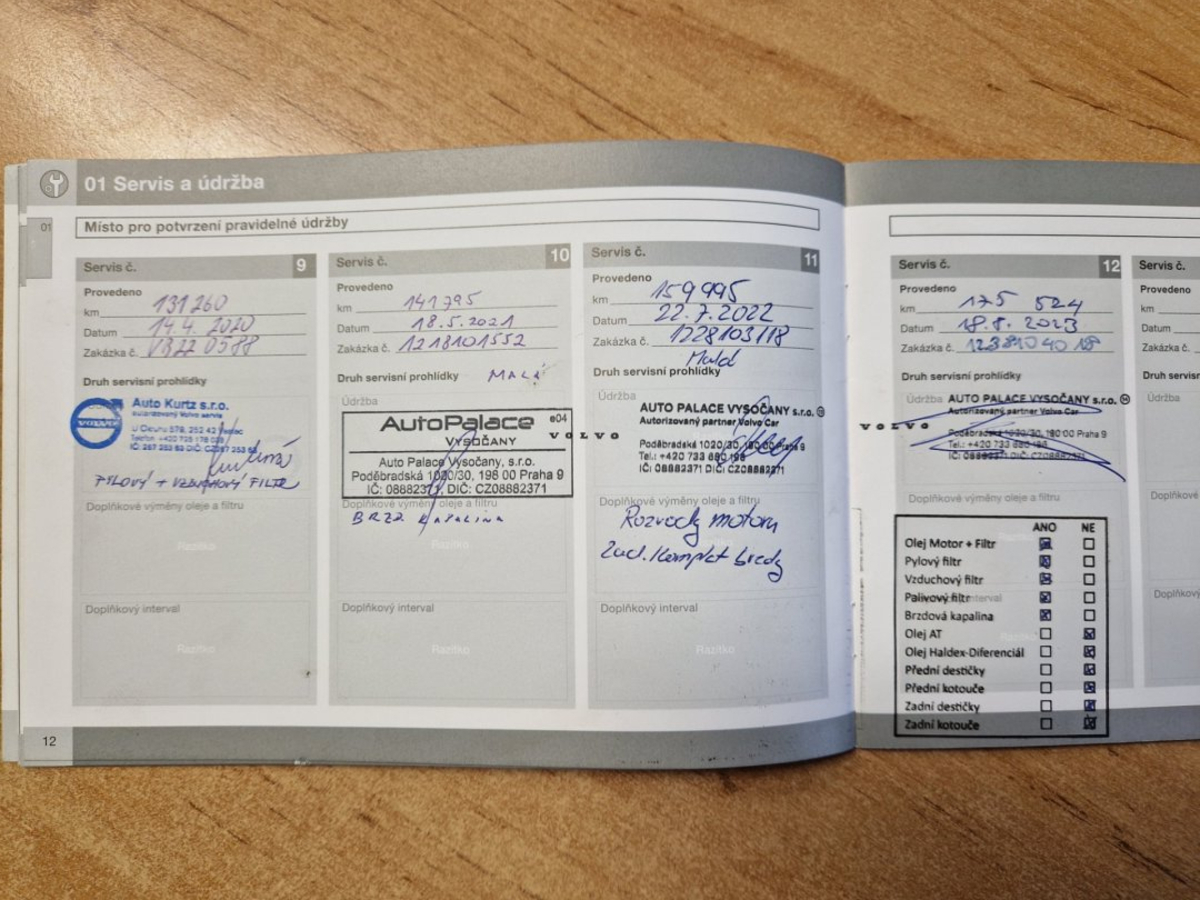 01 Servis a údržba
01
Místo pro potvrzení pravidelné údržby
Servis č. 9
Provedeno
km 131260
Datum 14.4. 2020
Zakázka č. VRZZ 0588
Druh servisní prohlídky
VOLVO
Auto Kurtz s.r.o.
autorizovaný Volvo servis
PYLOVÝ + VZDUCHOVÝ FILTR
Doplňkové výměny oleje a filtru
Razítko
Doplňkový interval
Razítko
12
Servis č. 10
Provedeno
km 141795
Datum 18.5.2021
Zakázka č. 1218101552
Druh servisní prohlídky MALÁ
Údržba
AutoPalace e04
VYSOČANY
VOLVO
Auto Palace Vysočany, s.r.o.
Poděbradská 1020/30, 198 00 Praha 9
IČ: 08882371, DIČ: CZ08882371
Doplňkové výměny oleje a filtru
BRZD. KAPALINA
Razítko
Doplňkový interval
Razítko
Servis č. 11
Provedeno
km 159995
Datum 22.7.2022
Zakázka č. 1228103118
Malá
Druh servisní prohlídky
Údržba
AUTO PALACE VYSOČANY s.r.o.
Autorizovaný partner Volvo Car
Poděbradská 1020/30, 190 00 Praha 9
Tel.: +420 733 690 198
IČ: 08882371 DIČ: CZ08882371
Doplňkové výměny oleje a filtru
Rozvody motoru
Zad. komplet brzdy
Doplňkový interval
Razítko
Servis č. 12
Provedeno
km 175 524
Datum 18.8. 2023
Zakázka č. 1238104018
Druh servisní prohlídky
Údržba
AUTO PALACE VYSOČANY s.r.o.
Autorizovaný partner Volvo Car
VOLVO
Poděbradská 1020/30, 190 00 Praha 9
Tel.: +420 733 690 198
IČ: 08882371 DIČ: CZ08882371
Doplňkové výměny oleje a filtru
ANO NE
Olej Motor + Filtr
Pylový filtr
Vzduchový filtr
Palivový filtr
Brzdová kapalina
Olej AT
Olej Haldex-Diferenciál
Přední destičky
Přední kotouče
Zadní destičky
Zadní kotouče
Servis č.
Provedeno
km
Datum
Zakázka č.
Druh servisní
Údržba